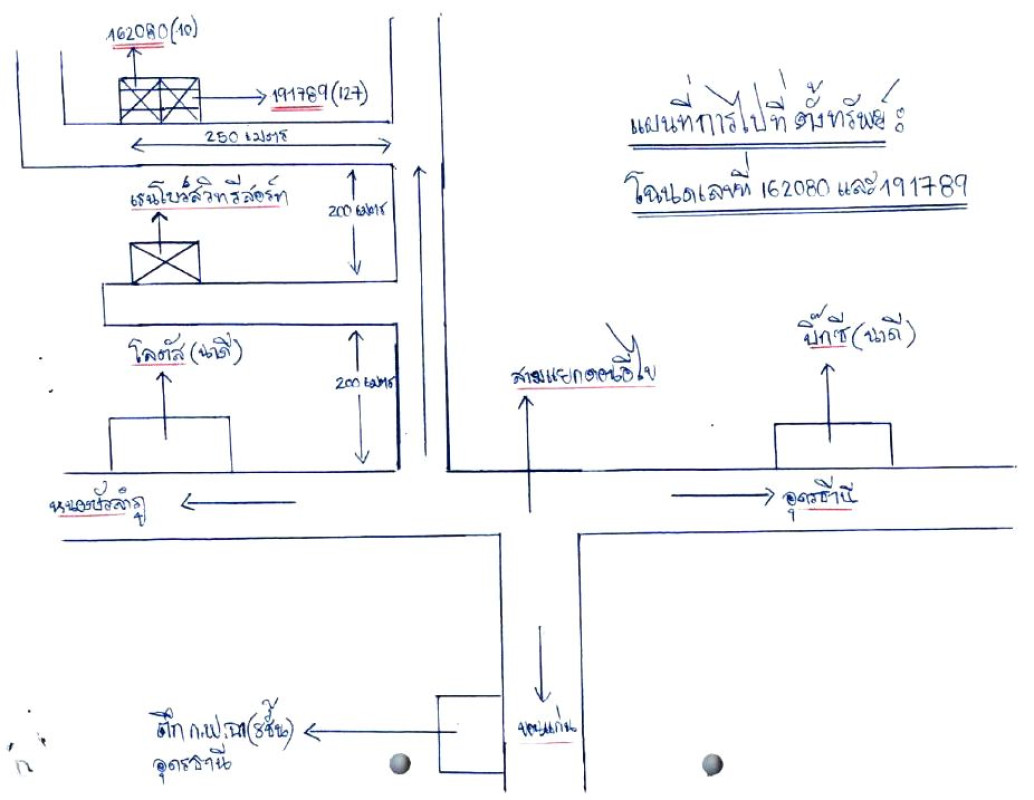 162080(10)
191789(127)
250 เมตร
แผนที่การไปที่ตั้งทรัพย์ :
โฉนดเลขที่ 162080 และ 191789
เรนโบว์สวิทรีสอร์ท
200 เมตร
โลตัส (นาดี)
200 เมตร
สามแยกดอนอีไข
บิ๊กซี (นาดี)
หนองบัวลำภู
อุดรธานี
ตึก ก.ฟ.ฉ (8ชั้น)
อุดรธานี
ขอนแก่น